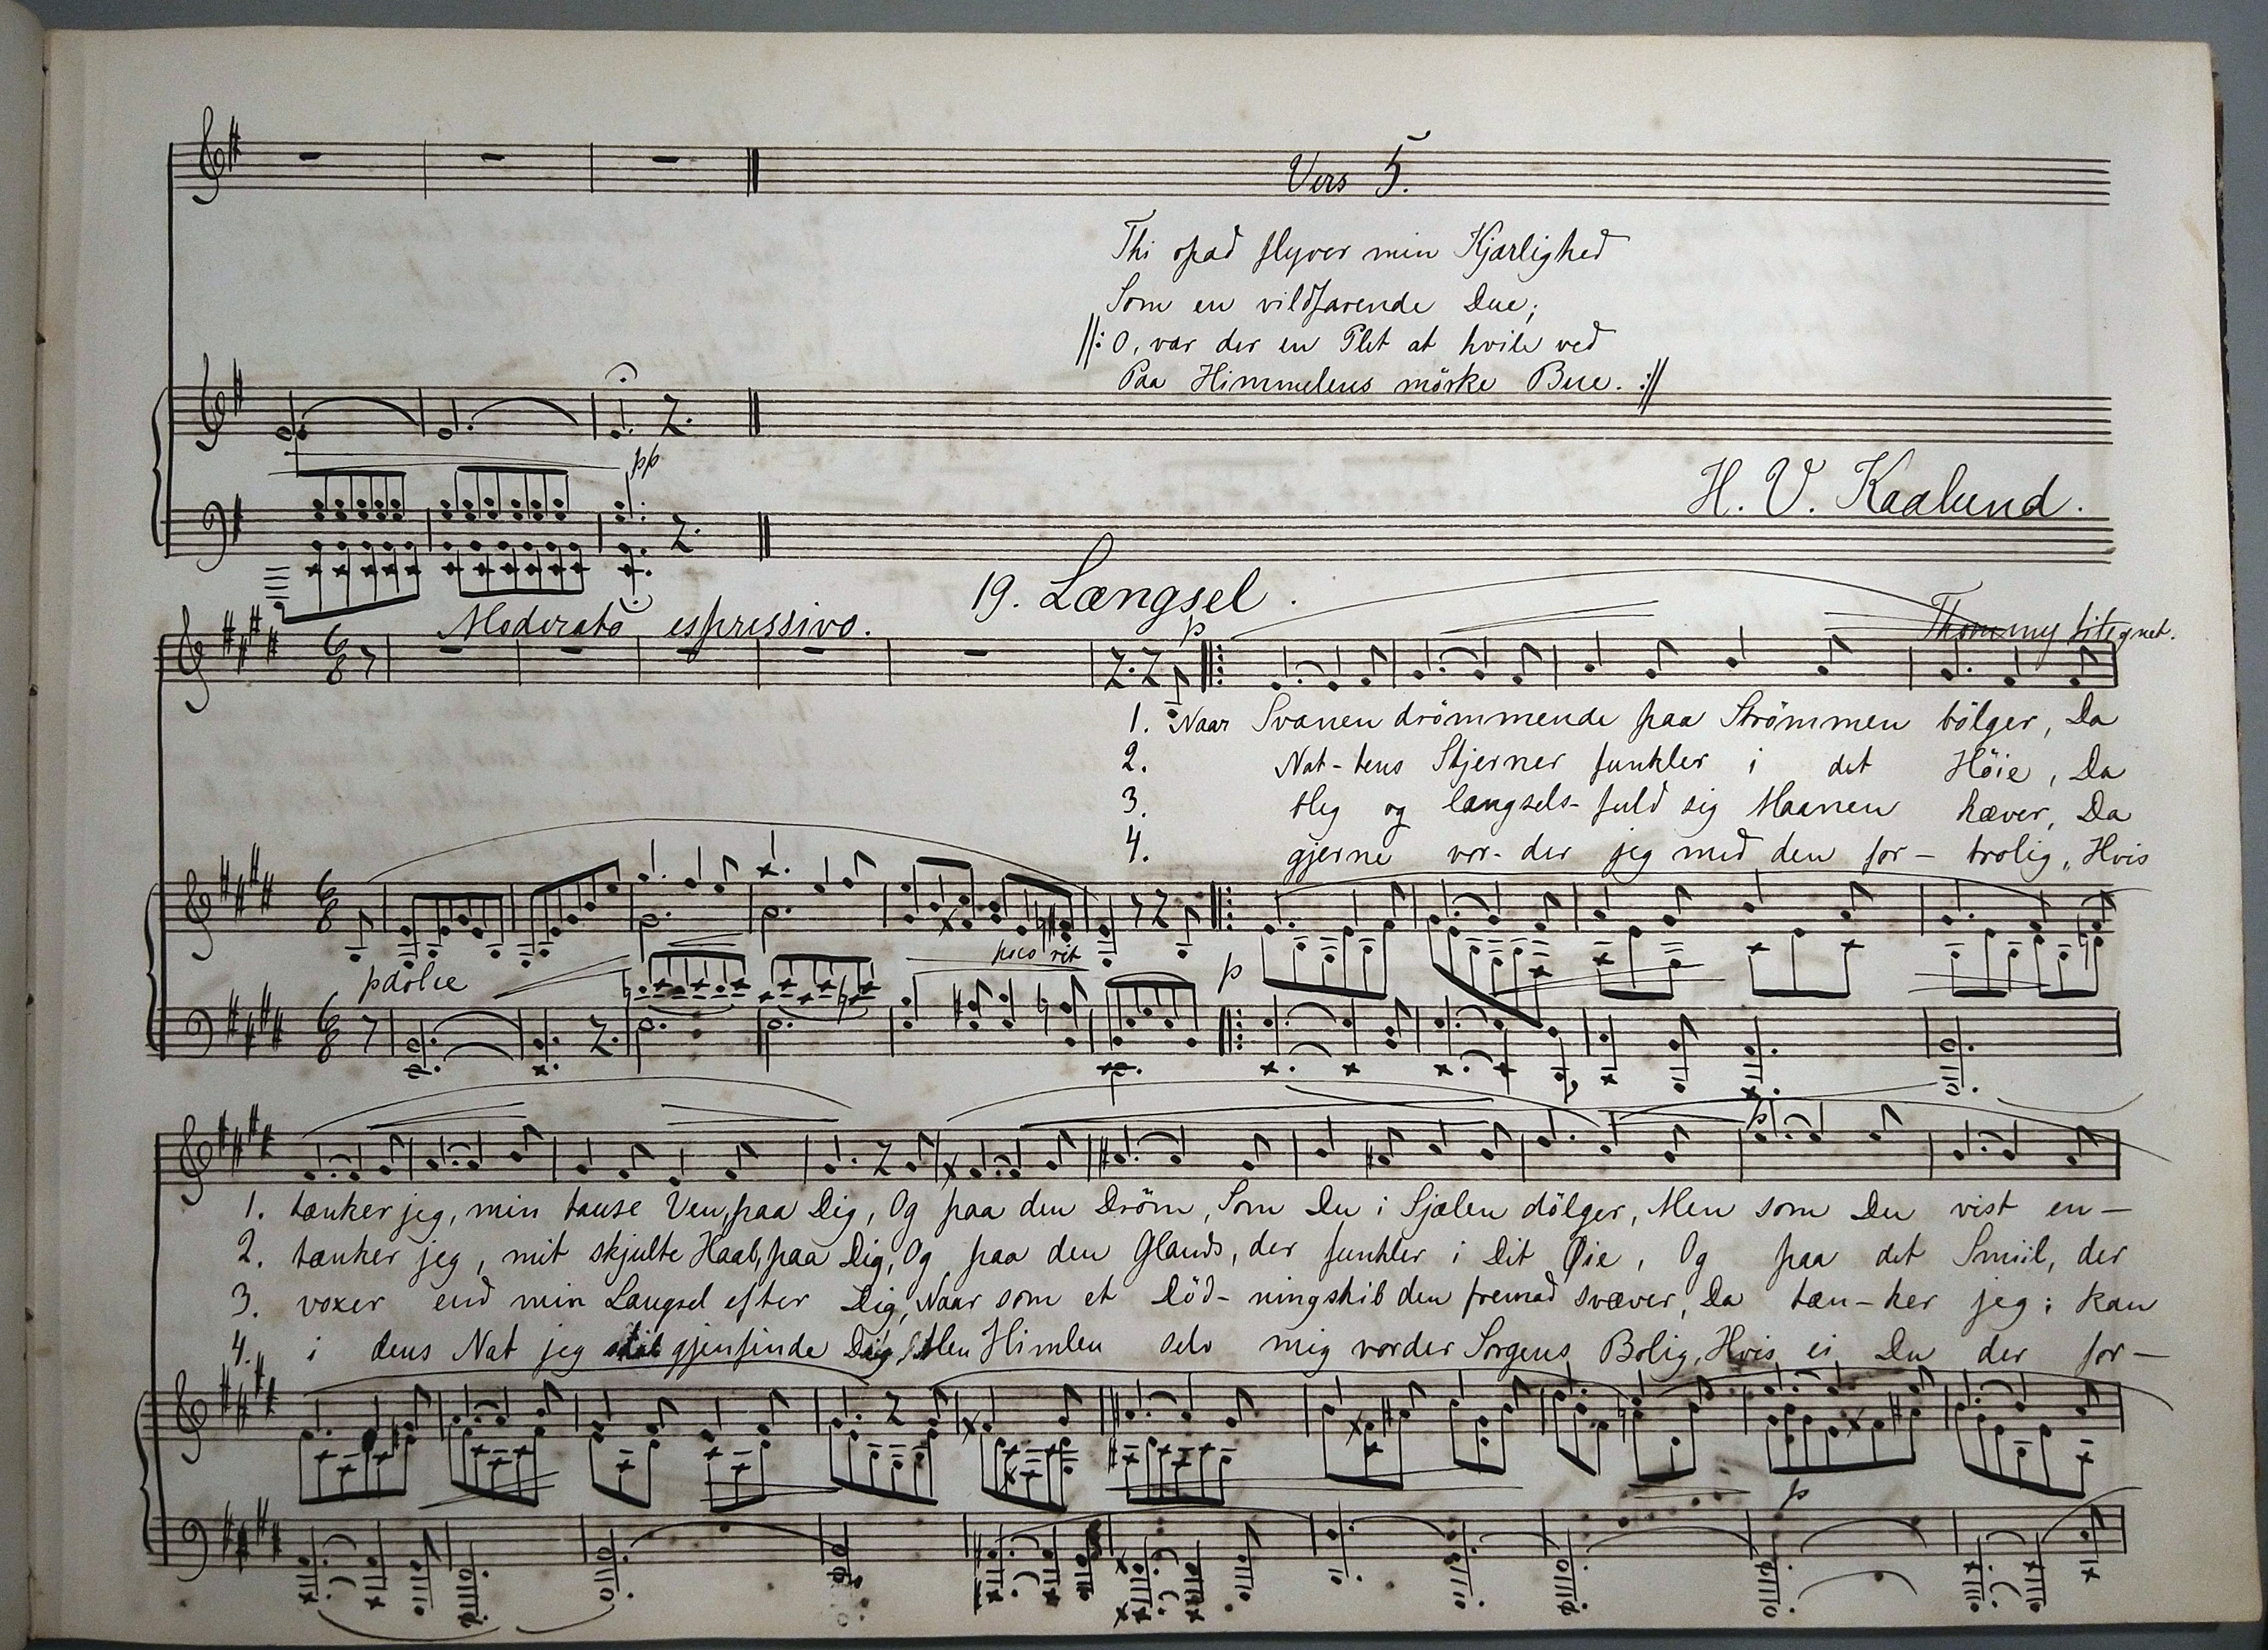 Vers 5.
Thi opad flyver min Kjærlighed
Som en vildfarende Due;
||: O, var der en Plet at hvile ved
Paa Himmelens mörke Bue. :||
H. V. Kaalund.
19. Længsel.
Moderato espressivo.
Thommy tilegnet.
pp
p
1. Naar Svanen drömmende paa Strömmen bölger, Da
2. Nat-tens Stjerner funkler i det Höie, Da
3. bleg og længsels-fuld sig Maanen hæver, Da
4. gjerne vor-der jeg med den for-trolig, Hvis
p dolce
poco rit
p
p
1. tænker jeg, min tause Ven, paa Dig, Og paa den Dröm, Som Du i Sjælen dölger, Men som Du vist en-
2. tænker jeg, mit skjulte Haab, paa Dig, Og paa den Glands, der funkler i Dit Øie, Og paa det Smiil, der
3. voxer end min Længsel efter Dig, Naar som et Död-ningskib den fremad svæver, Da tæn-ker jeg: kan
4. i dens Nat jeg gjenfinde Dig, Men Himlen selv mig vorder Sorgens Bolig, Hvis ei Du der for-
p